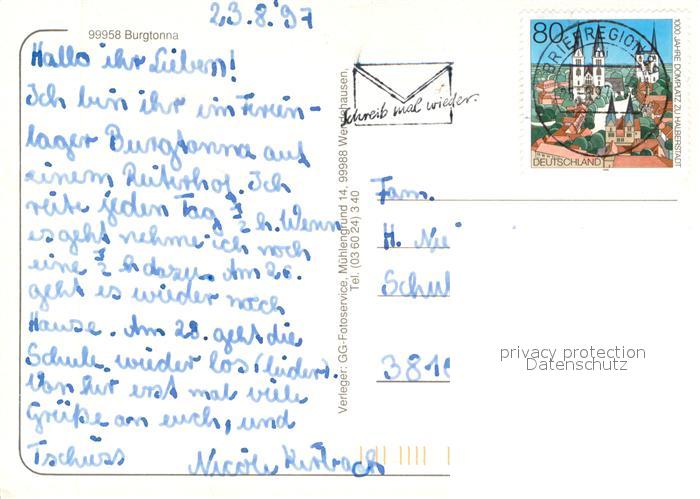 23.8.97
99958 Burgtonna
Hallo ihr Lieben!
Ich bin ihr im Ferien-
lager Burgtonna auf
einem Reiterhof. Ich
reite jeden Tag ½ h. Wenn
es geht nehme ich noch
eine ½ h dazu. Am 26.
geht es wieder nach
Hause. Am 28. geht die
Schule wieder los (leider).
Von hir erst mal viele
Grüße an euch, und
Tschüss Nicole
Verleger: GG-Fotoservice, Mühlengrund 14, 99988
Tel. (03 60 24) 3 40
Schreib mal wieder.
BRIEFREGION
80
1000 JAHRE DOMPLATZ ZU HALBERSTADT
DEUTSCHLAND
Fam.
H. Nei
Schul
3816
privacy protection
Datenschutz